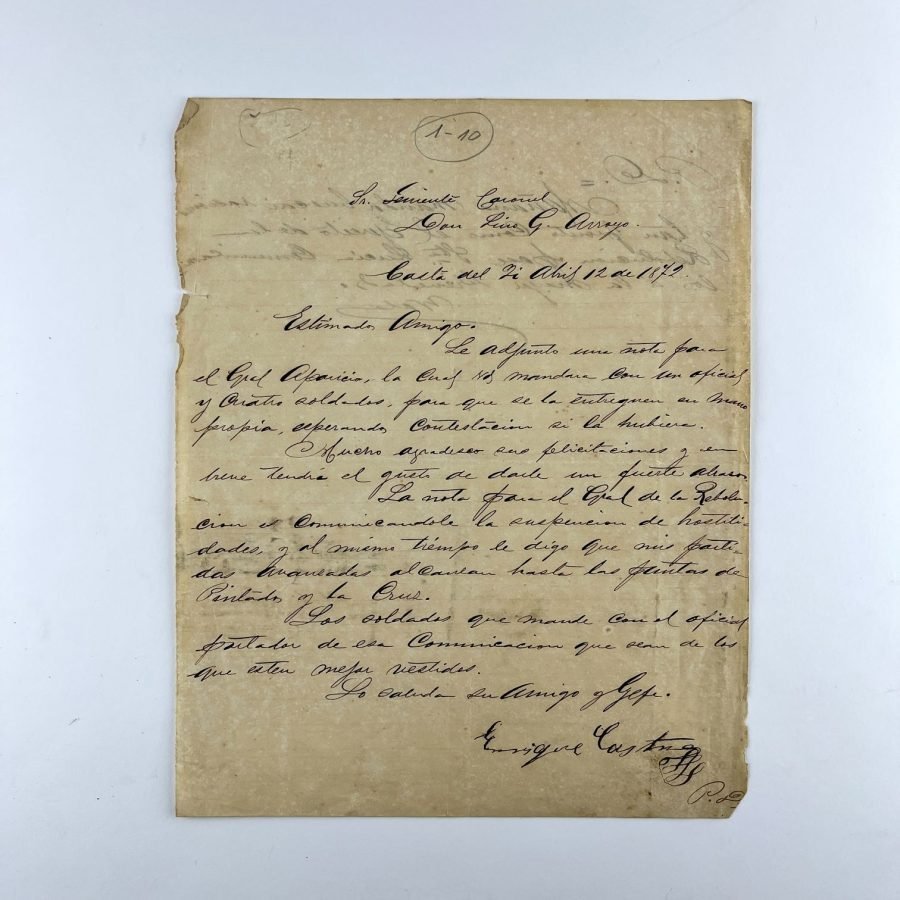 1-10
Sr. Teniente Coronel
Don Lino G. Arroyo.
Costa del Yi Abril 12 de 1872.
Estimado Amigo.
Le adjunto una nota para
el Gral Aparicio, la cual Vd mandara con un oficial
y cuatro soldados, para que se la entreguen en mano
propia, esperando contestacion si la hubiera.
Mucho agradesco sus felicitaciones y en
breve tendré el gusto de darle un fuerte abraso.
La nota para el Gral de la Rebolu-
cion es comunicandole la suspencion de hostili-
dades, y al mismo tiempo le digo que mis parti-
das avansadas alcansan hasta las puntas de
Pintado y la Cruz.
Los soldados que mande con el oficial
portador de esa Comunicacion que sean de los
que esten mejor vestidos.
Lo saluda su Amigo y Gefe.
Enrique Castro
P.D.